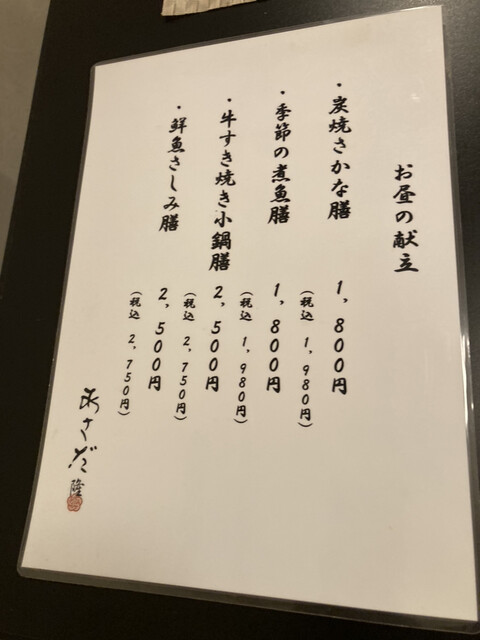 お昼の献立
・炭焼さかな膳 1,800円
(税込 1,980円)
・季節の煮魚膳 1,800円
(税込 1,980円)
・牛すき焼き小鍋膳 2,500円
(税込 2,750円)
・鮮魚さしみ膳 2,500円
(税込 2,750円)
あさだ 隆